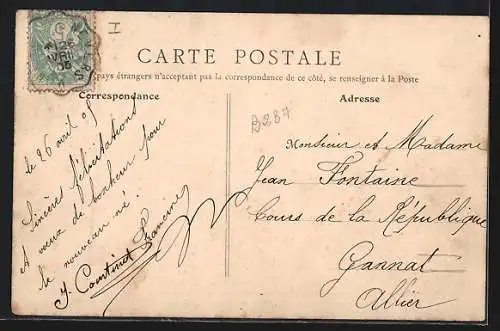 I
25
AVRIL
05
CARTE POSTALE
pays étrangers n'acceptant pas la correspondance de ce côté, se renseigner à la Poste
Correspondance
Adresse
B287
le 26 avril 05
Sincères félicitations
et vœux de bonheur pour
le nouveau né.
Monsieur et Madame
Jean Fontaine
Cours de la République
Gannat
Allier